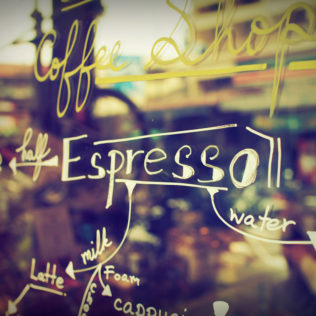 Coffee Shop
half Espresso
water
milk
Latte Foam